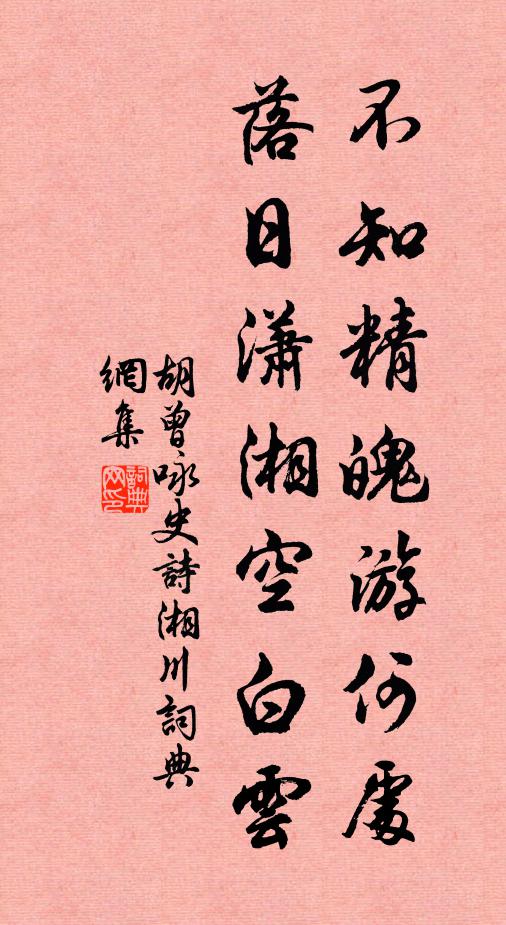 不知精魄游何處
落日瀟湘空白雲
胡曾咏史詩湘川詞典
網集
詞典
网印